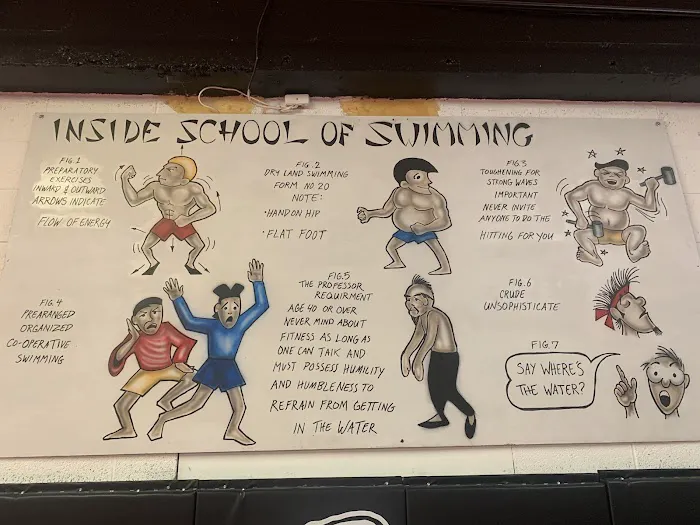 INSIDE SCHOOL OF SWIMMING
FIG.1
PREPARATORY
EXERCISES
INWARD & OUTWARD
ARROWS INDICATE
FLOW OF ENERGY
FIG.2
DRY LAND SWIMMING
FORM NO 20
NOTE:
·HAND ON HIP
·FLAT FOOT
FIG3
TOUGHENING FOR
STRONG WAVES
IMPORTANT
NEVER INVITE
ANYONE TO DO THE
HITTING FOR YOU
FIG.4
PREARANGED
ORGANIZED
CO-OPERATIVE
SWIMMING
FIG.5
THE PROFESSOR
REQUIRMENT
AGE 40 OR OVER
NEVER MIND ABOUT
FITNESS AS LONG AS
ONE CAN TALK AND
MUST POSSESS HUMILITY
AND HUMBLENESS TO
REFRAIN FROM GETTING
IN THE WATER
FIG.6
CRUDE
UNSOPHISTICATE
FIG.7
SAY WHERE'S
THE WATER?